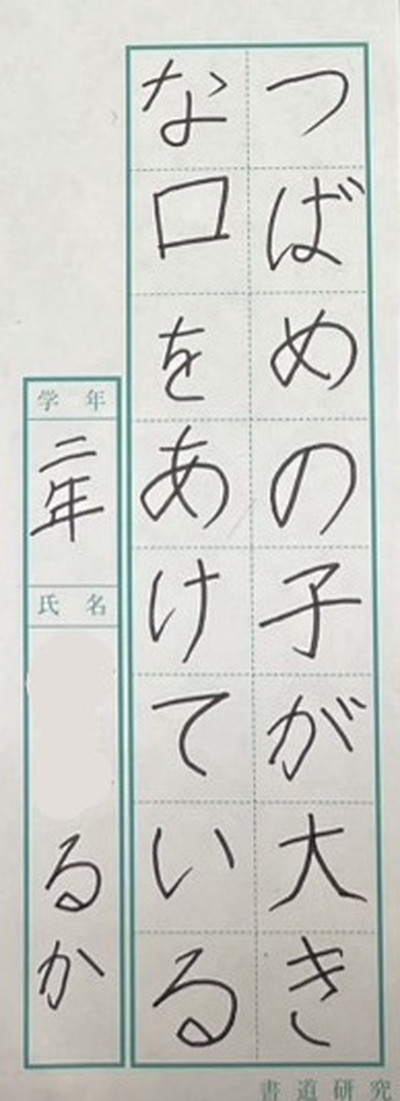 つばめの子が大き
な口をあけている
学年
二年
氏名
るか
書道研究